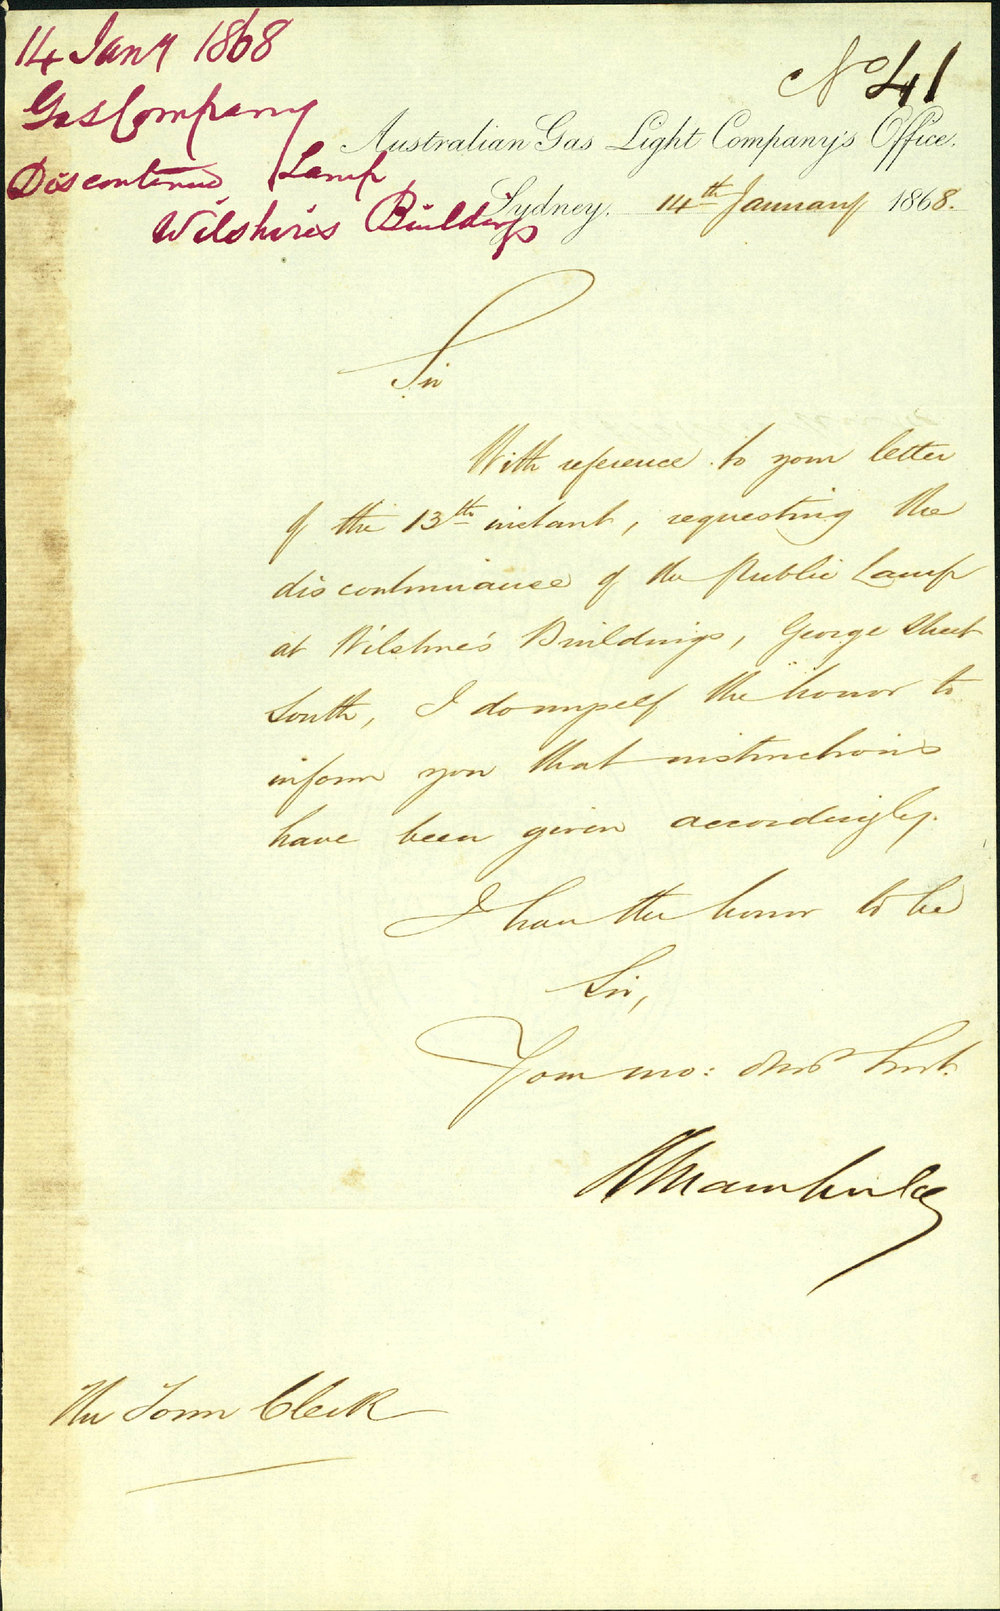 14 Jany 1868
Gas Company
Discontinue Lamp
Wilshire's Buildings
No 41
Australian Gas Light Company's Office.
Sydney. 14th January 1868.
Sir
With reference to your letter
of the 13th instant, requesting the
discontinuance of the Public Lamp
at Wilshire's Buildings, George Street
South, I do myself the honor to
inform you that instructions
have been given accordingly.
I have the honor to be
Sir,
Your mo: obdt Servt.
The Town Clerk